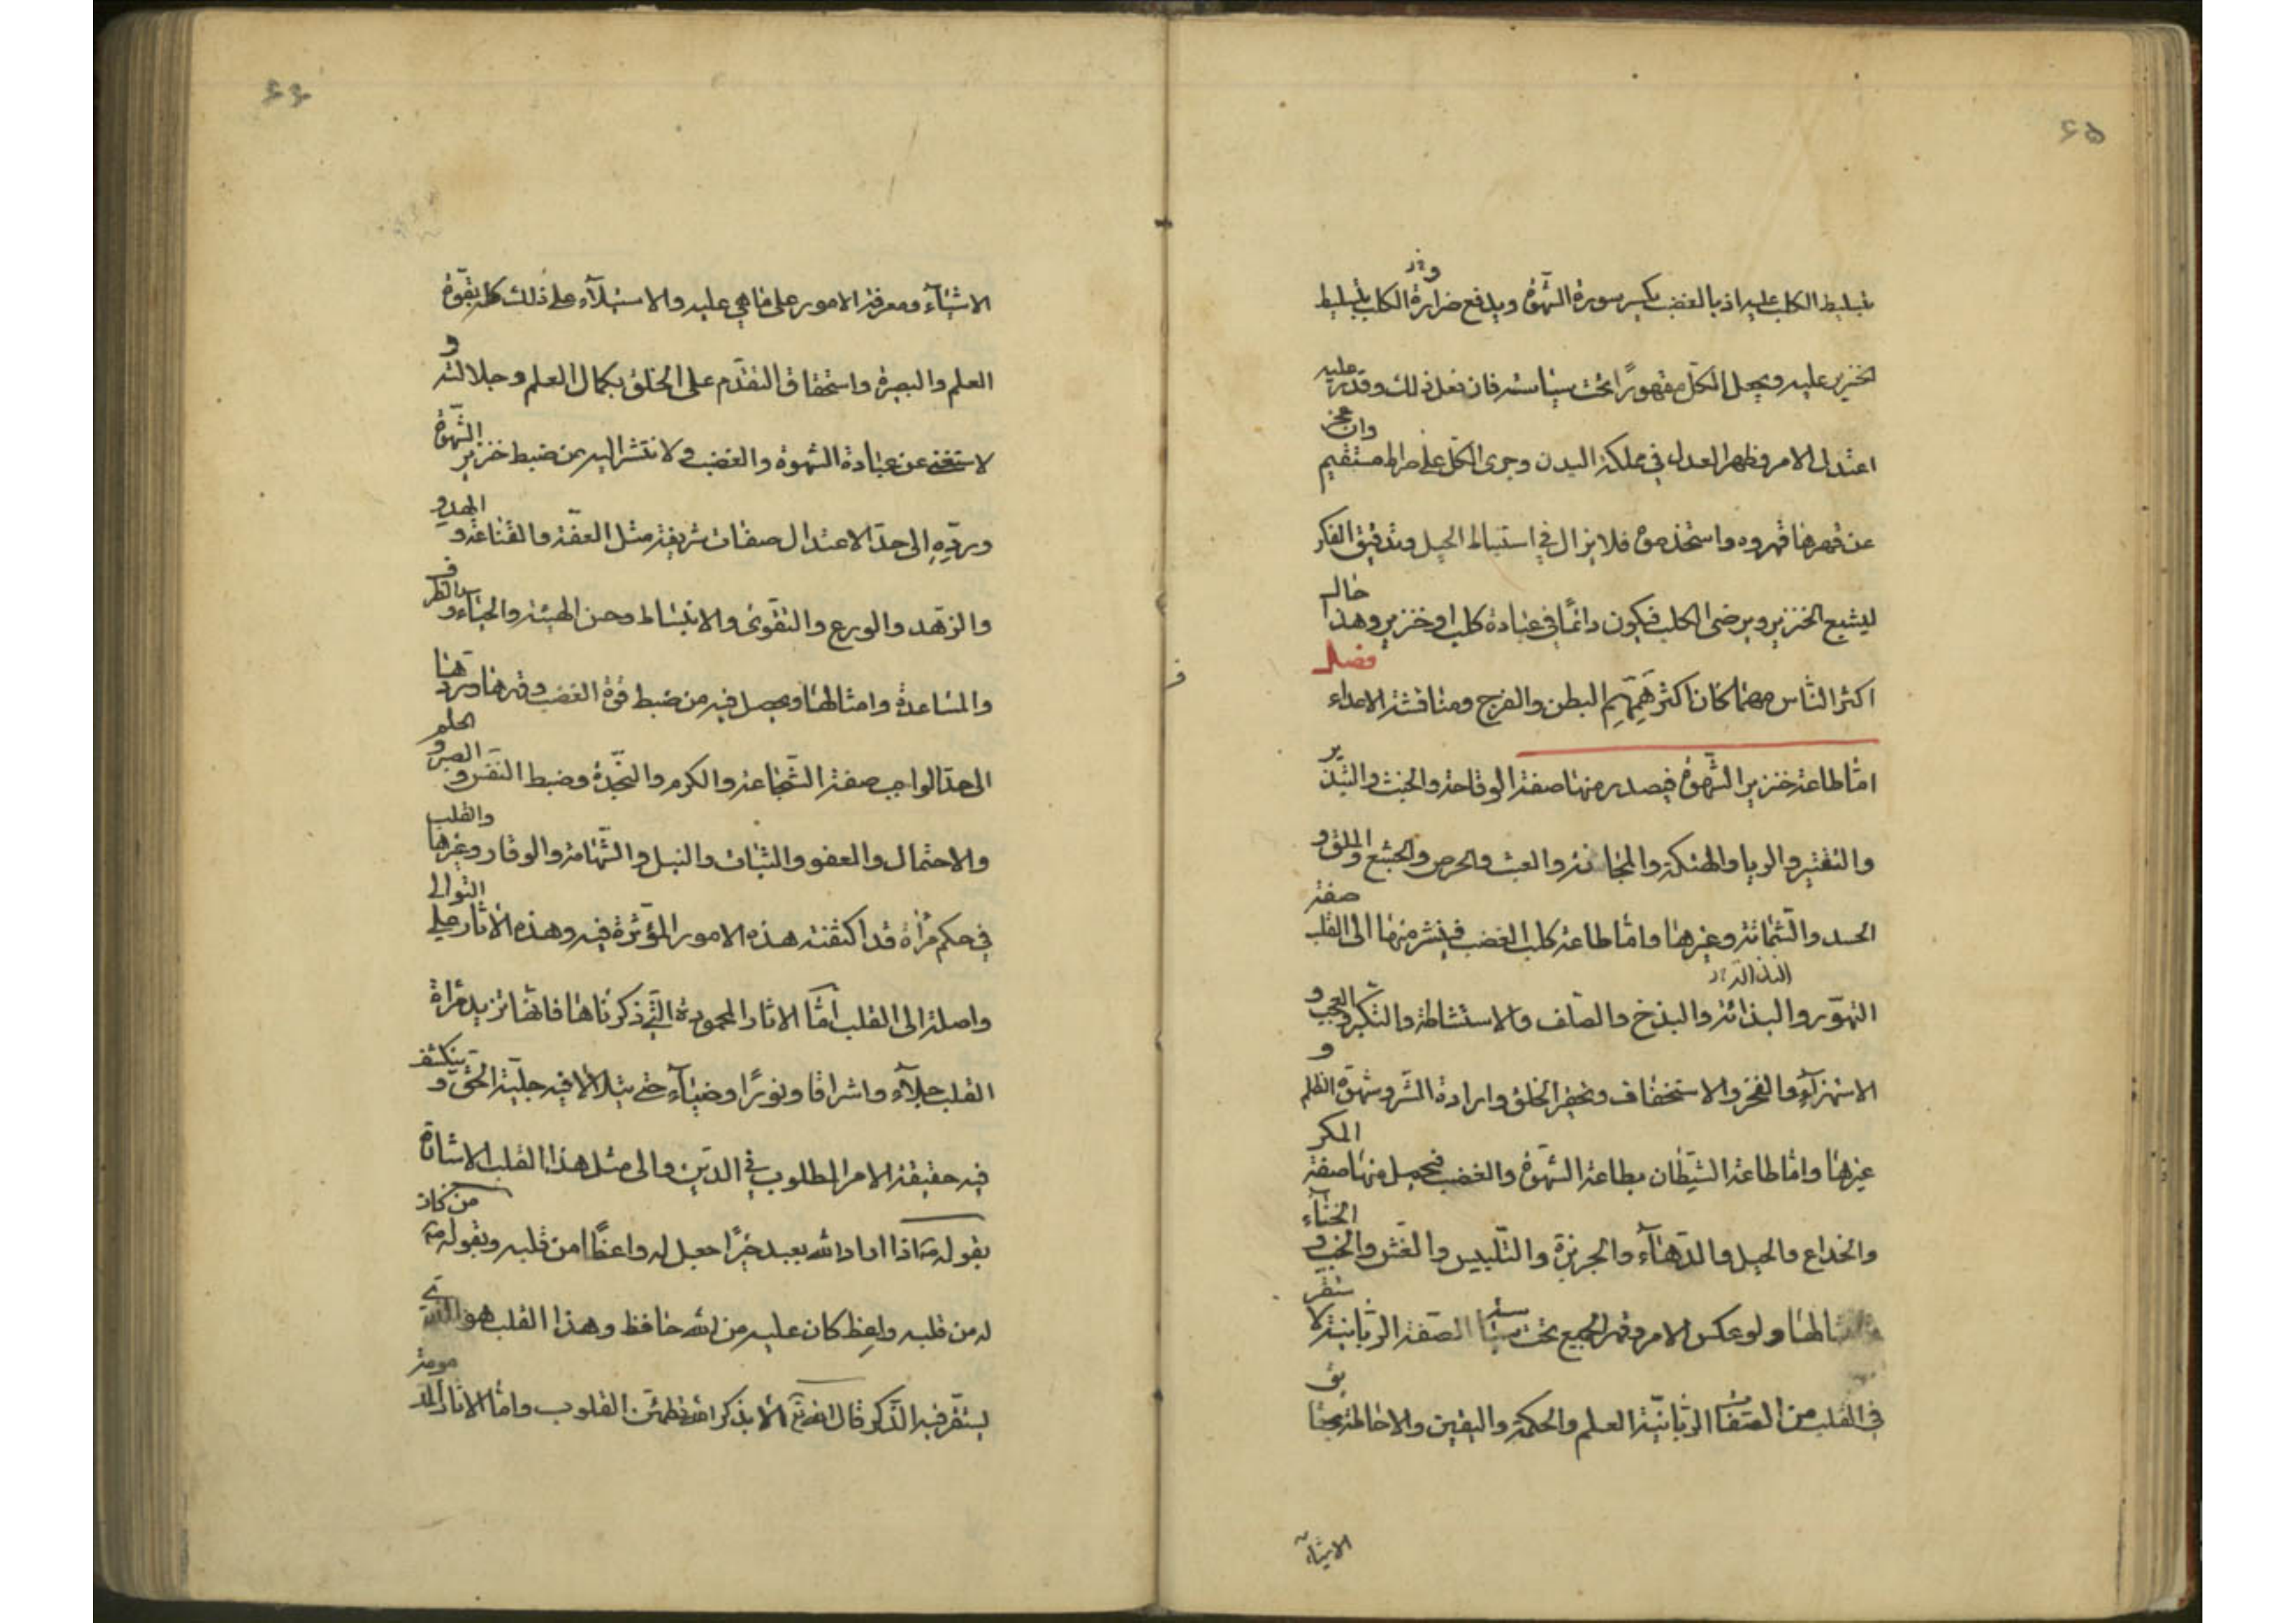 ٤٥
بتسليط الكلب عليه اذ بالغضب يكسر سورة الشهوة ويدفع ضراوة الكلب بتسليط
الخنزير عليه ويجعل الكل مقهورًا تحت سياسته فان فعل ذلك وقدر عليه
اعتدل الامر وظهر العدل في مملكة البدن وجرى الكل على صراط مستقيم وان عجز
عن قهرها قهروه واستخدموه فلا يزال في استنباط الحيل وتدقيق الفكر
ليشبع الخنزير ويرضى الكلب فيكون دائمًا في عبادة كلب او خنزير وهذا حال
اكثر الناس مهما كان اكثر هممهم البطن والفرج ومناقشة الاعداء فصل
امّا طاعة خنزير الشهوة فيصدر منها صفة الوقاحة والخبث والتبذير
والتقتير والريا والهتكة والمجانة والعبث والحرص والجشع والملق و
الحسد والشماتة وغيرها وامّا طاعة كلب الغضب فينتشر منها الى القلب صفة
التهوّر والبذائة والبذخ والصلف والاستشاطة والتكبر والعجب و
الاستهزآء والفخر والاستخفاف وتحقير الخلق وارادة الشر وشهوة الظلم و
غيرها وامّا طاعة الشيطان بطاعة الشهوة والغضب فيحصل منها صفة المكر
والخداع والحيل والدهآء والجربزة والتلبيس والغش والخب و الخنآء
وامثالها ولو عكس الامر وقهر الجميع تحت سياسة الصفة الربانية لاستقر
في القلب من الصفات الربانيّة العلم والحكمة واليقين والاحاطة بحقائق
الاشيآء
٤٦
الاشيآء ومعرفة الامور على ما هي عليه والاستيلآء على ذلك كله بقوة
العلم والبصيرة واستحقاق التقدّم على الخلق بكمال العلم وجلالته و
لاستغنى عن عبادة الشهوة والغضب ولانتشر اليه من ضبط خنزير الشهوة
وردّه الى حدّ الاعتدال صفات شريفة مثل العفّة والقناعة و الهدو
والزهد والورع والتقوى والانبساط وحسن الهيئة والحياء و الظرف
والمساعدة وامثالها ويحصل فيه من ضبط قوة الغضب وقهرها وردّها
الى حدّ الواجب صفة الشجاعة والكرم والنجدة وضبط النفس و الصبر و الحلم
والاحتمال والعفو والثبات والنبل والشهامة والوقار وغيرها والقلب
في حكم مرأة قد اكتنفته هذه الامور المؤثرة فيه وهذه الاثار على التوالى
واصلة الى القلب امّا الاثار المحمودة التي ذكرناها فانها تزيد مرأة
القلب جلآء واشراقا ونورًا وضيآء حتى يتلألأ فيه جليّة الحق و ينكشف
فيه حقيقة الامر المطلوب في الدين والى مثل هذا القلب الاشارة
بقوله ص اذا اراد الله بعبد خيرًا جعل له واعظًا من قلبه وبقوله ص من كان
له من قلبه واعظ كان عليه من الله حافظ وهذا القلب هو الذي
يستقر فيه الذكر قال الله تع ألا بذكر الله تطمئن القلوب وامّا الاثار المذمومة